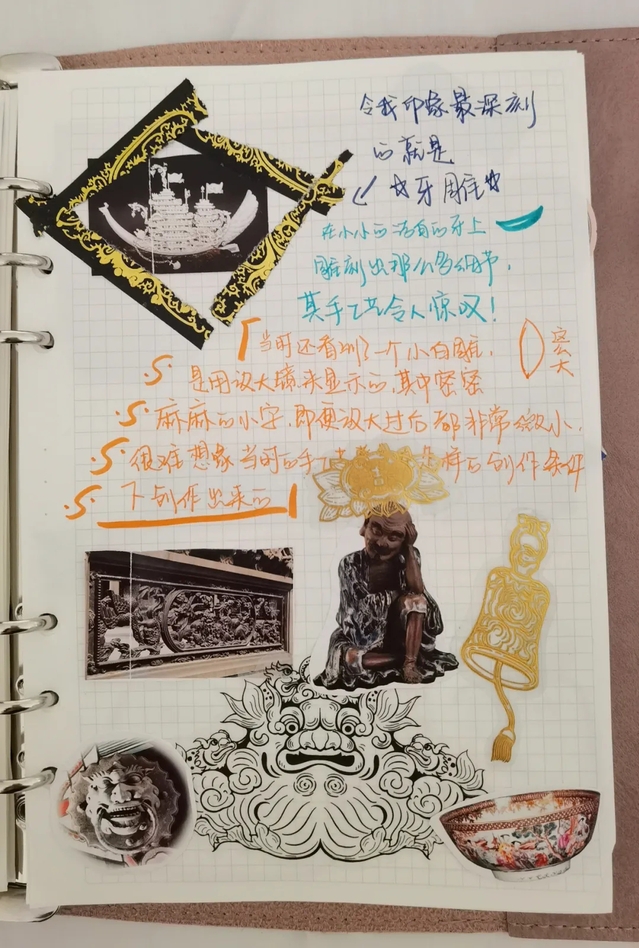 令我印象最深刻
的就是
☆牙雕☆
在小小的洁白的牙上
雕刻出那么多细节，
其手工艺令人惊叹！
当时还看到了一个小白雕，
是用放大镜来显示的，其中密密
麻麻的小字，即便放大过后都非常微小，
很难想象当时的手工 样的创作条件
下创作出来的